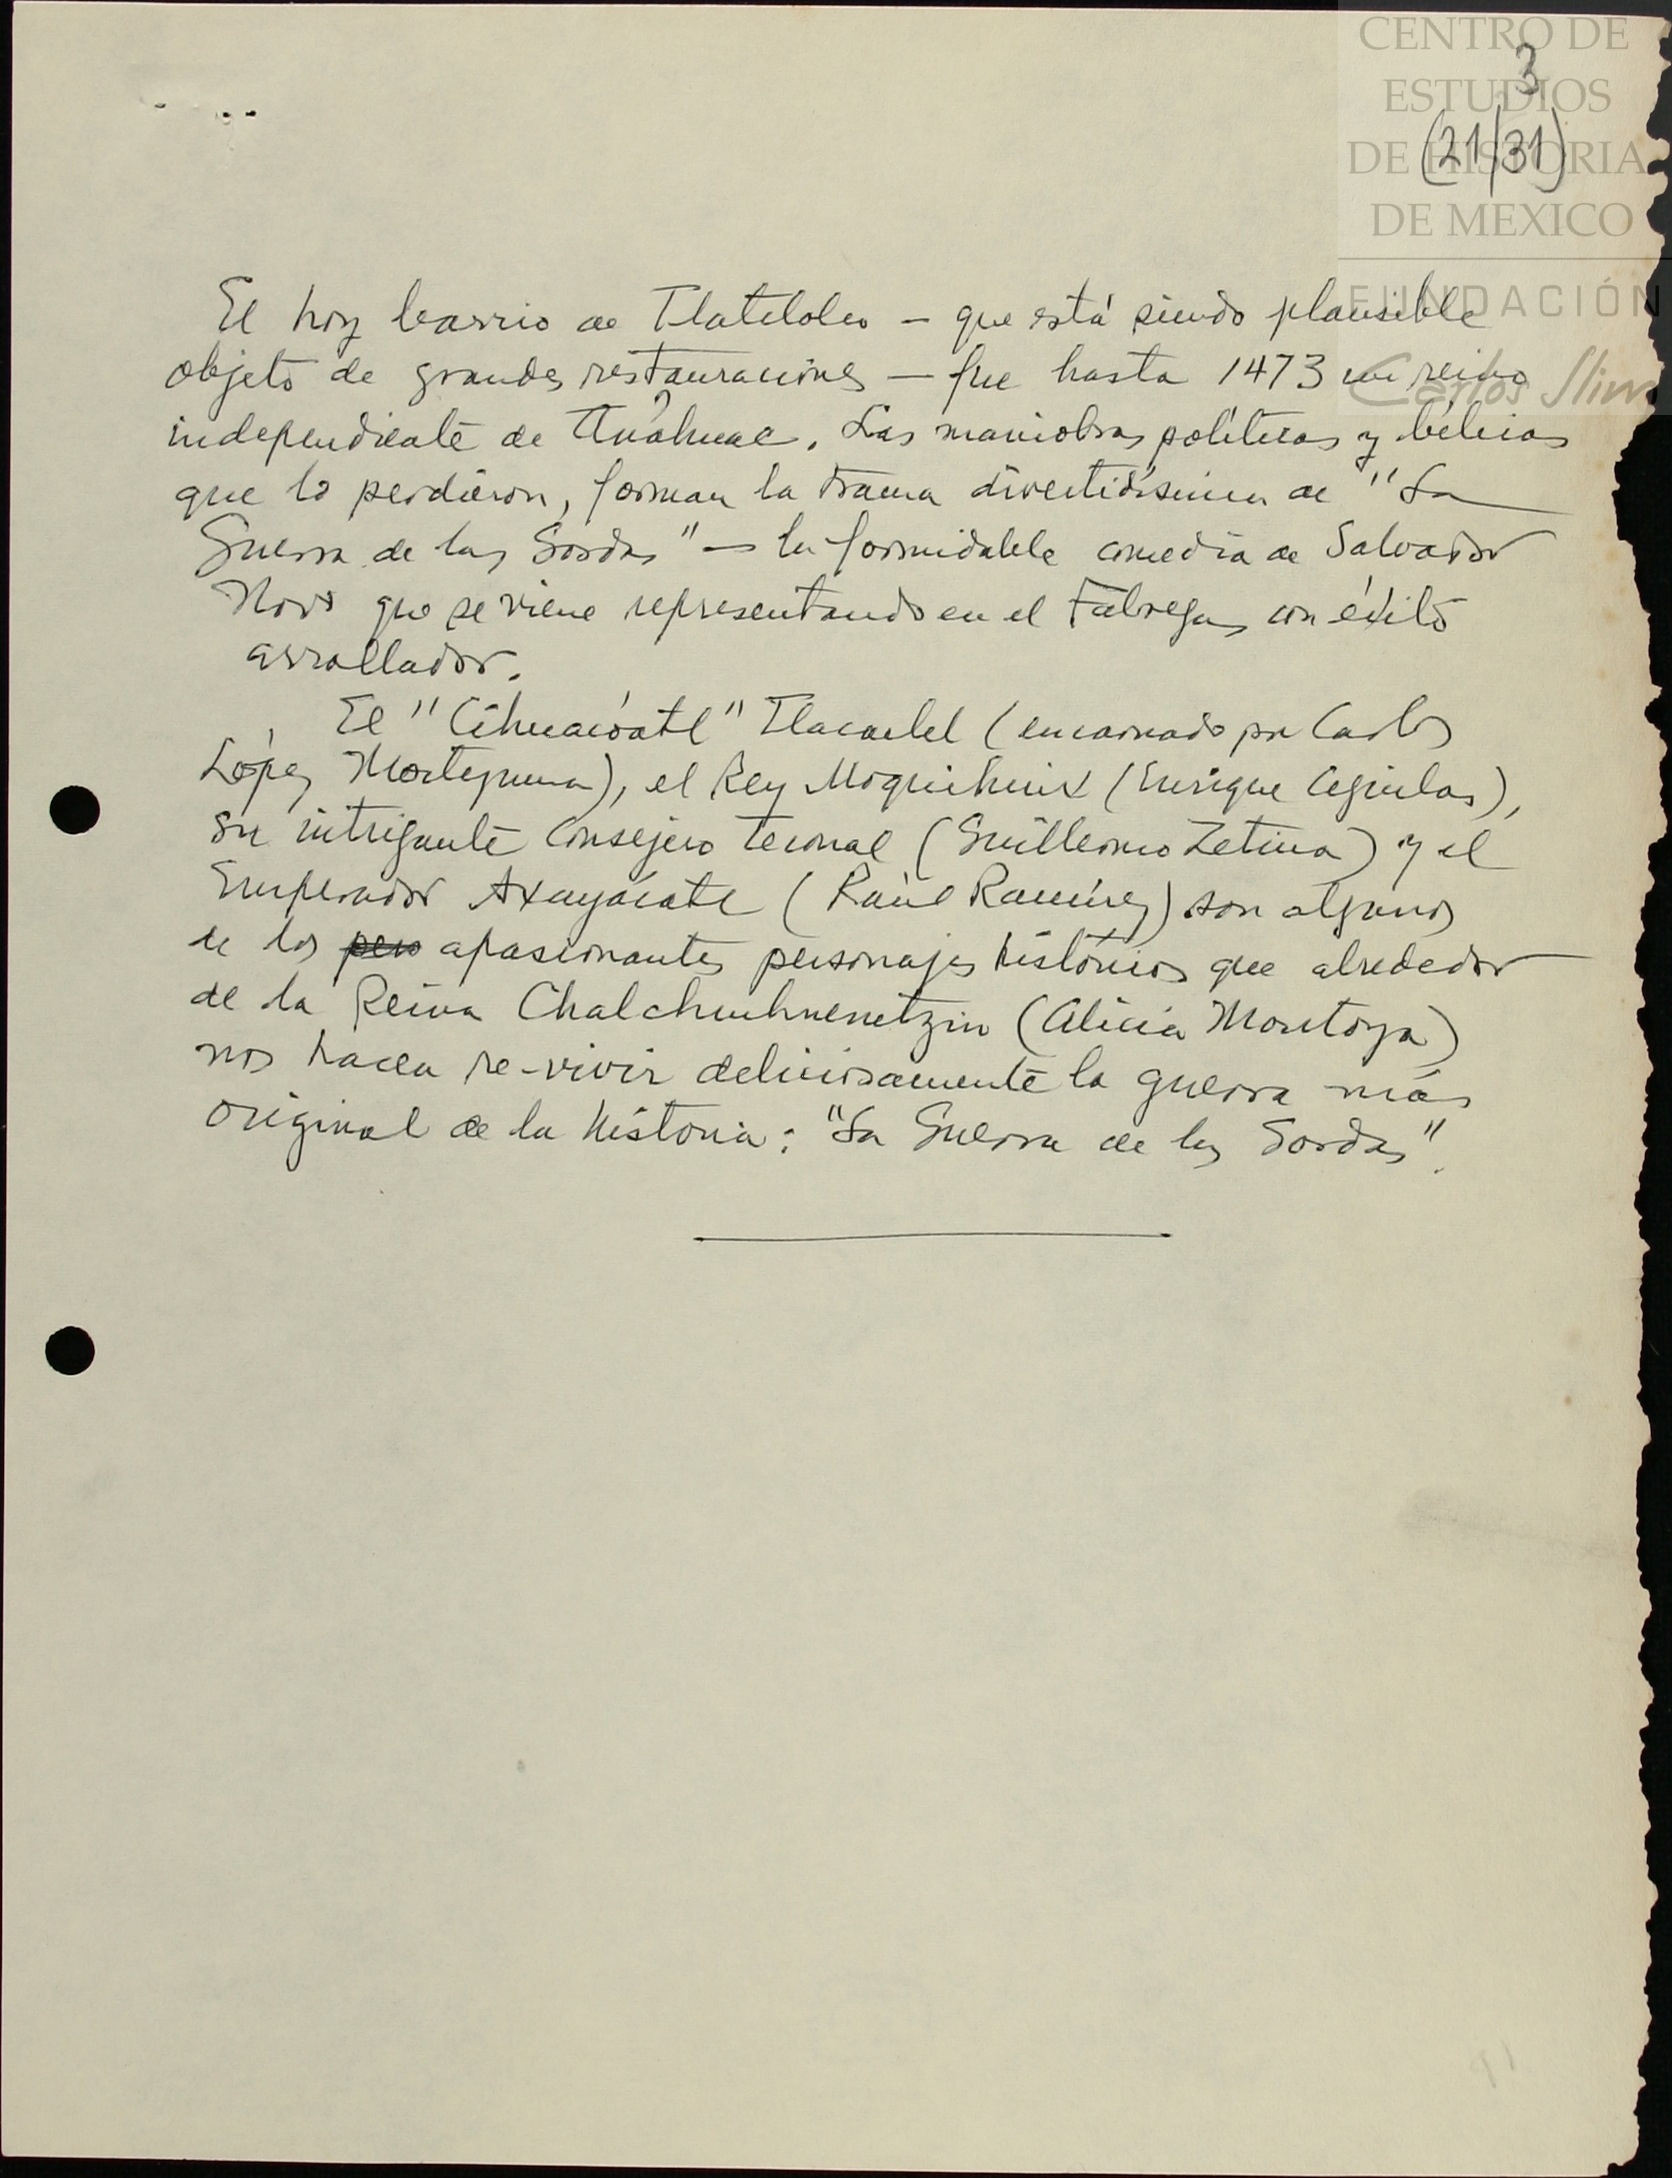 CENTRO DE
ESTUDIOS
DE HISTORIA
DE MEXICO
FUNDACIÓN
Carlos Slim
3
(21/31)
El hoy barrio de Tlatelolco — que está siendo plausible
objeto de grandes restauraciones — fue hasta 1473 un reino
independiente de Anáhuac. Las maniobras políticas y bélicas
que lo perdieron, forman la trama divertidísima de "La
Guerra de las Gordas" — la formidable comedia de Salvador
Novo que se viene representando en el Fábregas con éxito
arrollador.
El "Cihuacóatl" Tlacaelel (encarnado por Carlos
López Moctezuma), el Rey Moquihuix (Enrique Aguilar),
su intrigante Consejero Teconal (Guillermo Zetina) y el
Emperador Axayácatl (Raúl Ramírez) son algunos
de los pers apasionantes personajes históricos que alrededor
de la Reina Chalchiuhnenetzin (Alicia Montoya)
nos hacen re-vivir deliciosamente la guerra más
original de la historia: "La Guerra de las Gordas".